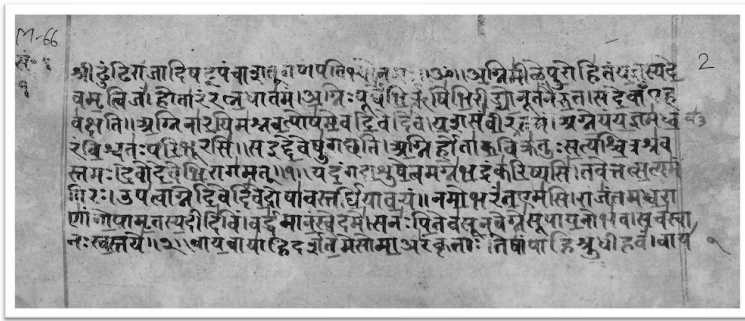 M-66
सं॰ १
१
2
श्रीढुंढिराजादिषट्पंचाशत् गणपतिभ्यो नमः ॥ ॐ ॥ अग्निमीळे पुरोहितं यज्ञस्य दे
वमृत्विजं । होतारं रत्नधातमं । अग्निः पूर्वेभिर्ऋषिभिरीड्यो नूतनैरुत । स देवाँ एह
वक्षति ॥ अग्निना रयिमश्नवत्पोषमेव दिवेदिवे । यशसं वीरवत्तमं । अग्ने यं यज्ञमध्व
रं विश्वतः परिभूरसि । स इद्देवेषु गच्छति । अग्निर्होता कविक्रतुः सत्यश्चित्रश्रव
स्तमः । देवो देवेभिरागमत् ॥ १ ॥ यदंग दाशुषे त्वमग्ने भद्रं करिष्यसि । तवेत्तत्सत्यमं
गिरः । उप त्वाग्ने दिवेदिवे दोषावस्तर्धिया वयं । नमो भरंत एमसि । राजंतमध्वरा
णां गोपामृतस्य दीदिविं । वर्द्धमानं स्वे दमे । स नः पितेव सूनवेग्ने सूपायनो भव । सचस्वा
नः स्वस्तये ॥ २ ॥ वायवायाहि दर्शतेमे सोमा अरंकृताः । तेषां पाहि श्रुधी हवं । वाय